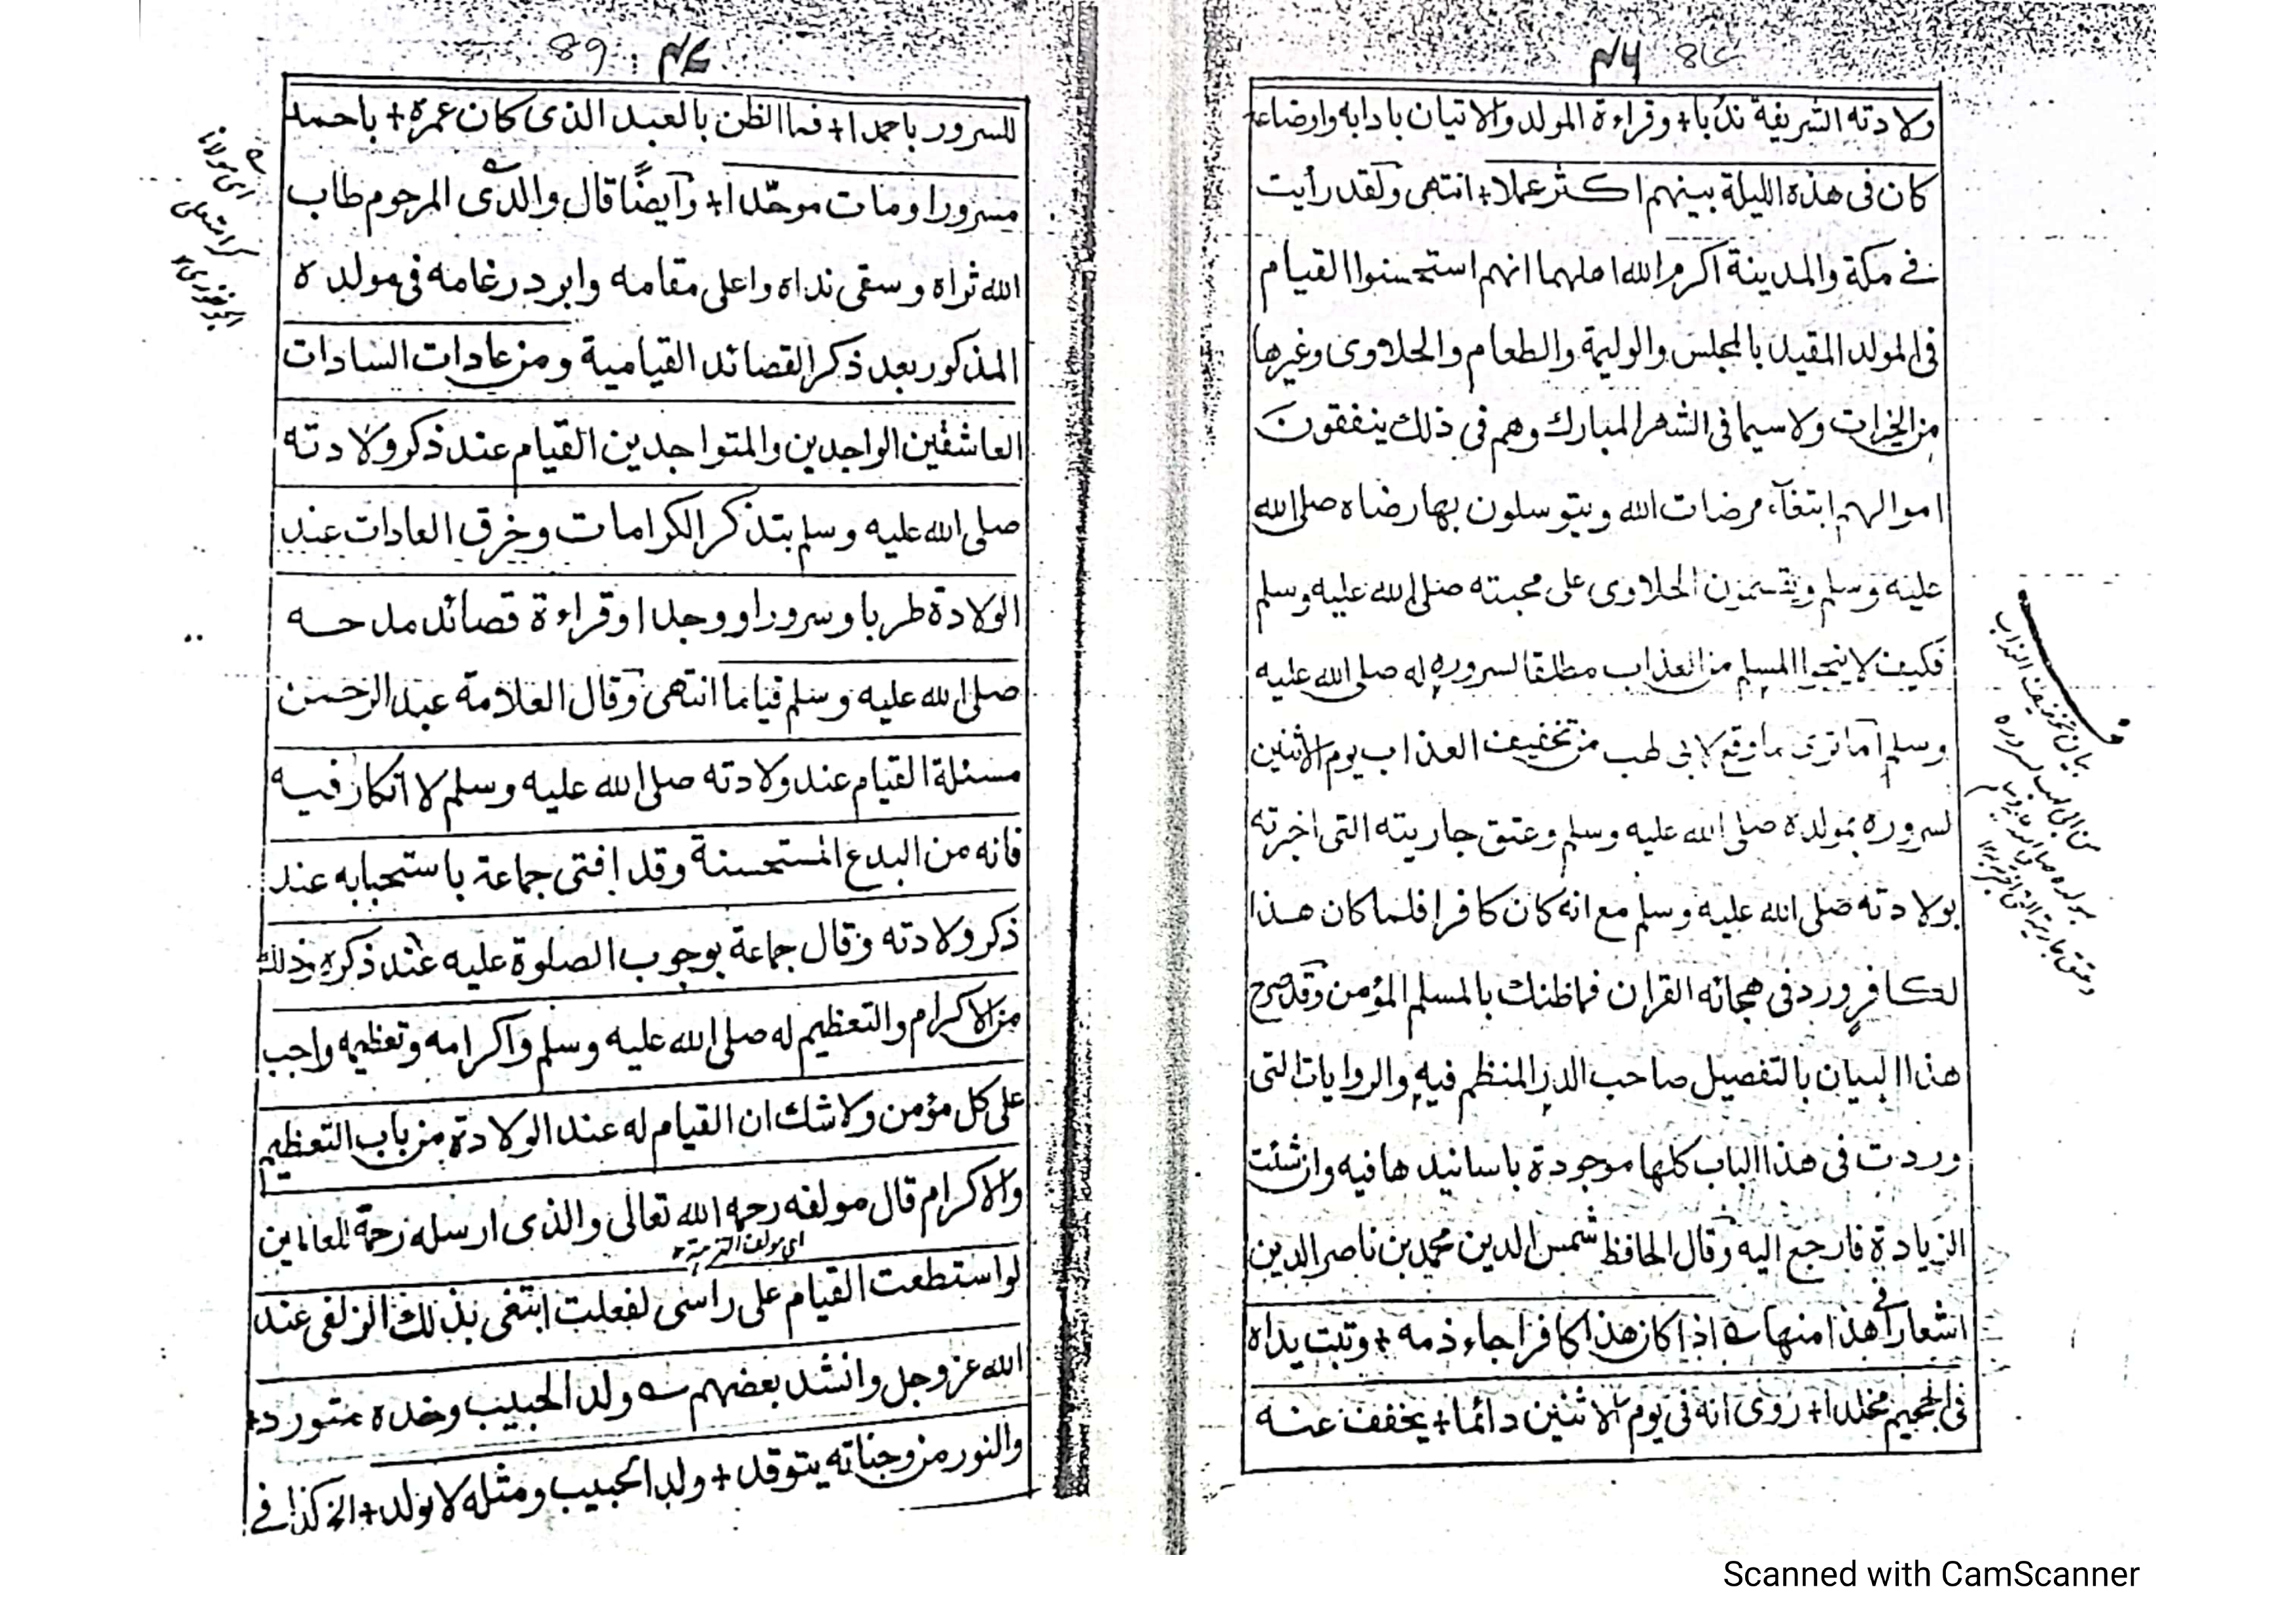 ولادته الشريفة ندبا + وقراءة المولد والاتيان بادابه وارضاعه
كان فى هذه الليلة بينهم اكثر عملا + انتهى ولقد رأيت
فى مكة والمدينة اكرم الله اهلهما انهم استحسنوا القيام
فى المولد المقيد بالمجلس والوليمة والطعام والحلاوى وغيرها
من الخيرات ولا سيما فى الشهر المبارك وهم فى ذلك ينفقون
اموالهم ابتغآء مرضات الله ويتوسلون بها رضاه صلى الله
عليه وسلم ويقسمون الحلاوى على محبته صلى الله عليه وسلم
فكيف لا ينجيا المسلم من العذاب مطلقا لسروره له صلى الله عليه
وسلم اما ترى ما وقع لابى لهب من تخفيف العذاب يوم الاثنين
لسروره بمولده صلى الله عليه وسلم وعتق جاريته التى اخبرته
بولادته صلى الله عليه وسلم مع انه كان كافرا فلما كان هذا
لكافر ورد فى هجائه القران فما ظنك بالمسلم المؤمن وقد صرح
هذا البيان بالتفصيل صاحب الدر المنظم فيه والروايات التى
وردت فى هذا الباب كلها موجودة باسانيدها فيه وان شئت
الزيادة فارجع اليه وقال الحافظ شمس الدين محمد بن ناصر الدين
اشعارا فى هذا منها اذا كان هذا كافرا جاء ذمه + وتبت يداه
فى الجحيم مخلدا + روى انه فى يوم الاثنين دائما + يخفف عنه
بيان تخفيف العذاب
من ابى لهب لسروره
89
للسرور باحمدا + فما الظن بالعبد الذى كان عمره + باحمد
مسرورا ومات موحّدا + وايضًا قال والدى المرحوم طاب
الله ثراه وسقى نداه واعلى مقامه وابرد رغامه فى مولده
المذكور بعد ذكر القصائد القيامية ومن عادات السادات
العاشقين الواجدين والمتواجدين القيام عند ذكر ولادته
صلى الله عليه وسلم بتذكر الكرامات وخرق العادات عند
الولادة طربا وسرورا ووجدا وقراءة قصائد مدحه
صلى الله عليه وسلم قياما انتهى وقال العلامة عبد الرحمن
مسئلة القيام عند ولادته صلى الله عليه وسلم لا انكار فيه
فانه من البدع المستحسنة وقد افتى جماعة باستحبابه عند
ذكر ولادته وقال جماعة بوجوب الصلوة عليه عند ذكره وذلك
من الاكرام والتعظيم له صلى الله عليه وسلم واكرامه وتعظيمه واجب
على كل مؤمن ولا شك ان القيام له عند الولادة من باب التعظيم
والاكرام قال مولفه رحمه الله تعالى والذى ارسله رحمة للعالمين
لو استطعت القيام على راسى لفعلت ابتغى بذلك الزلفى عند
الله عز وجل وانشد بعضهم ولد الحبيب وخده متورد +
والنور من وجناته يتوقد + ولد الحبيب ومثله لا يولد + الخ كذا فى
Scanned with CamScanner